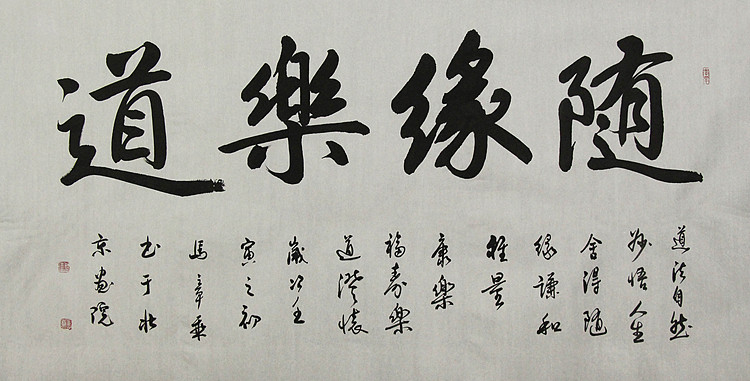 随緣樂道
道法自然
妙悟人生
舍得随
緣謙和
雅量
康樂
福寿樂
道澄懷
歲次壬
寅之初
馬章乘
书于北
京画院